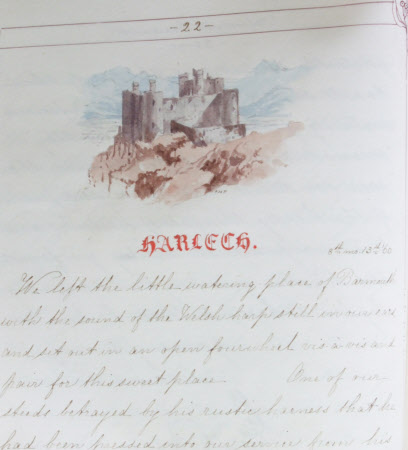 -22-
HARLECH.
8th mo. 13th
We left the little watering place of Barmouth
with the sound of the Welsh harp still in our ears
and set out in an open fourwheel vis à vis and
pair for this sweet place One of our
steeds betrayed by his rustic harness that he
had been pressed into our service from his